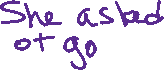 She asked
ot go